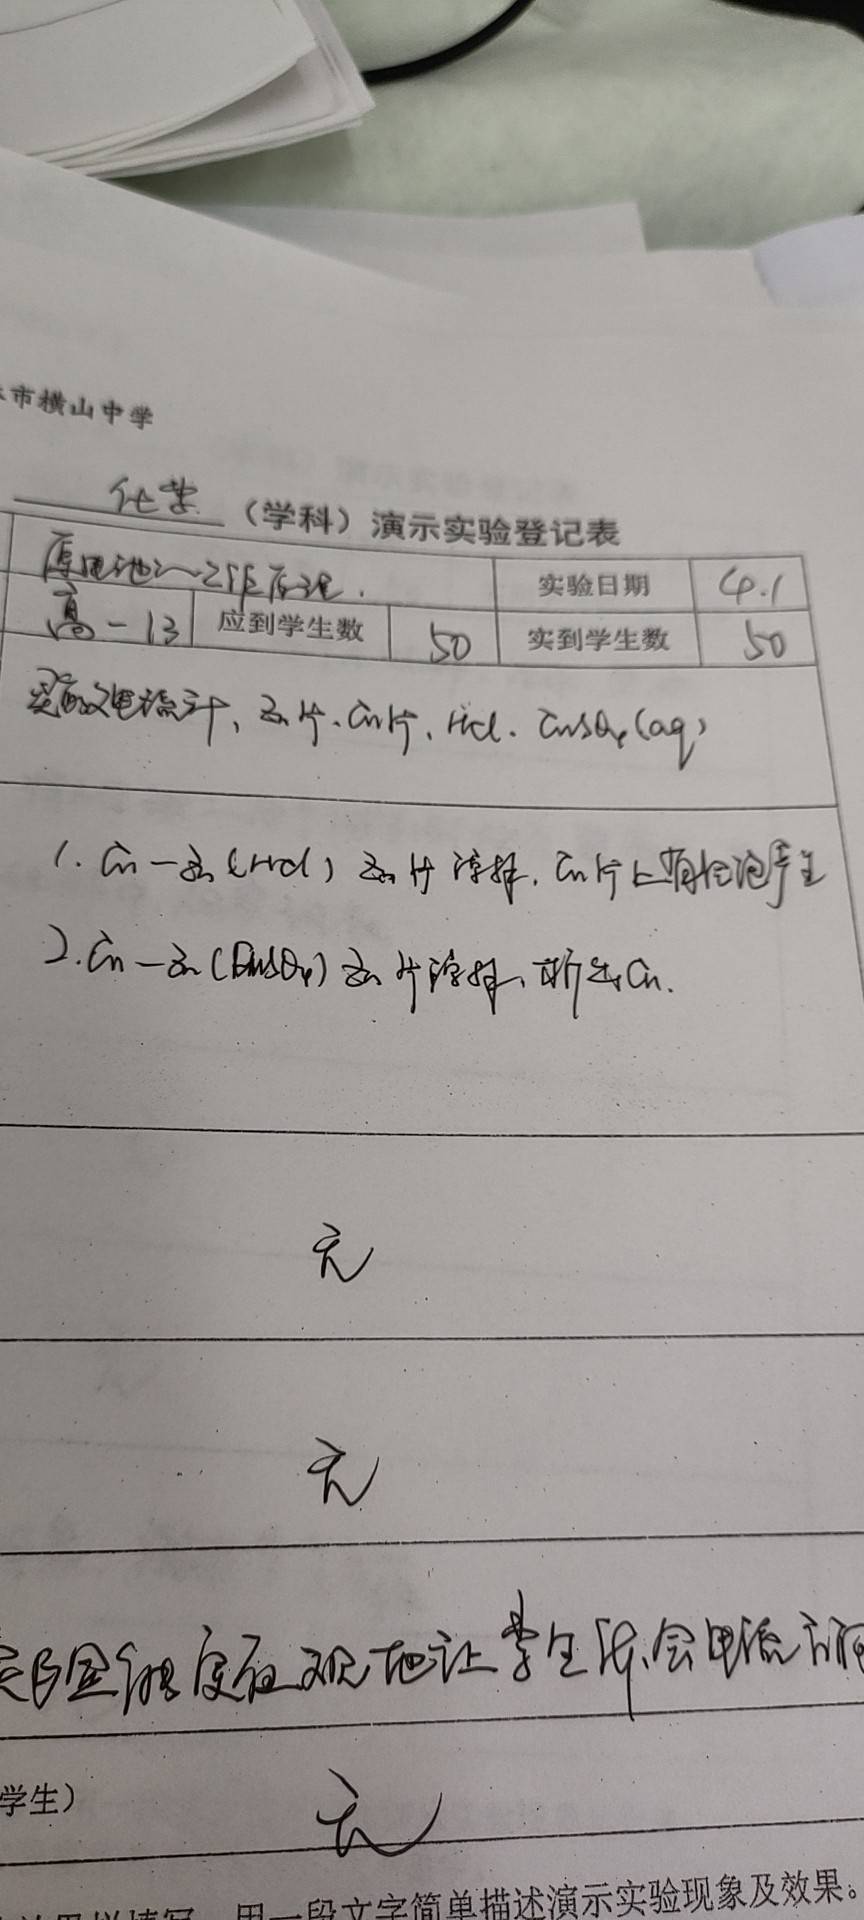 市横山中学
化学 （学科）演示实验登记表
原电池工作原理. 实验日期 4.1
高一13 应到学生数 50 实到学生数 50
灵敏电流计、Zn片、Cu片、HCl、CuSO4(aq)
1. Cu-Zn(HCl) Zn片溶解，Cu片上有气泡产生
2. Cu-Zn(CuSO4) Zn片溶解，析出Cu.
无
无
实验能直观地让学生体会电流
学生）
无
用一段文字简单描述演示实验现象及效果。